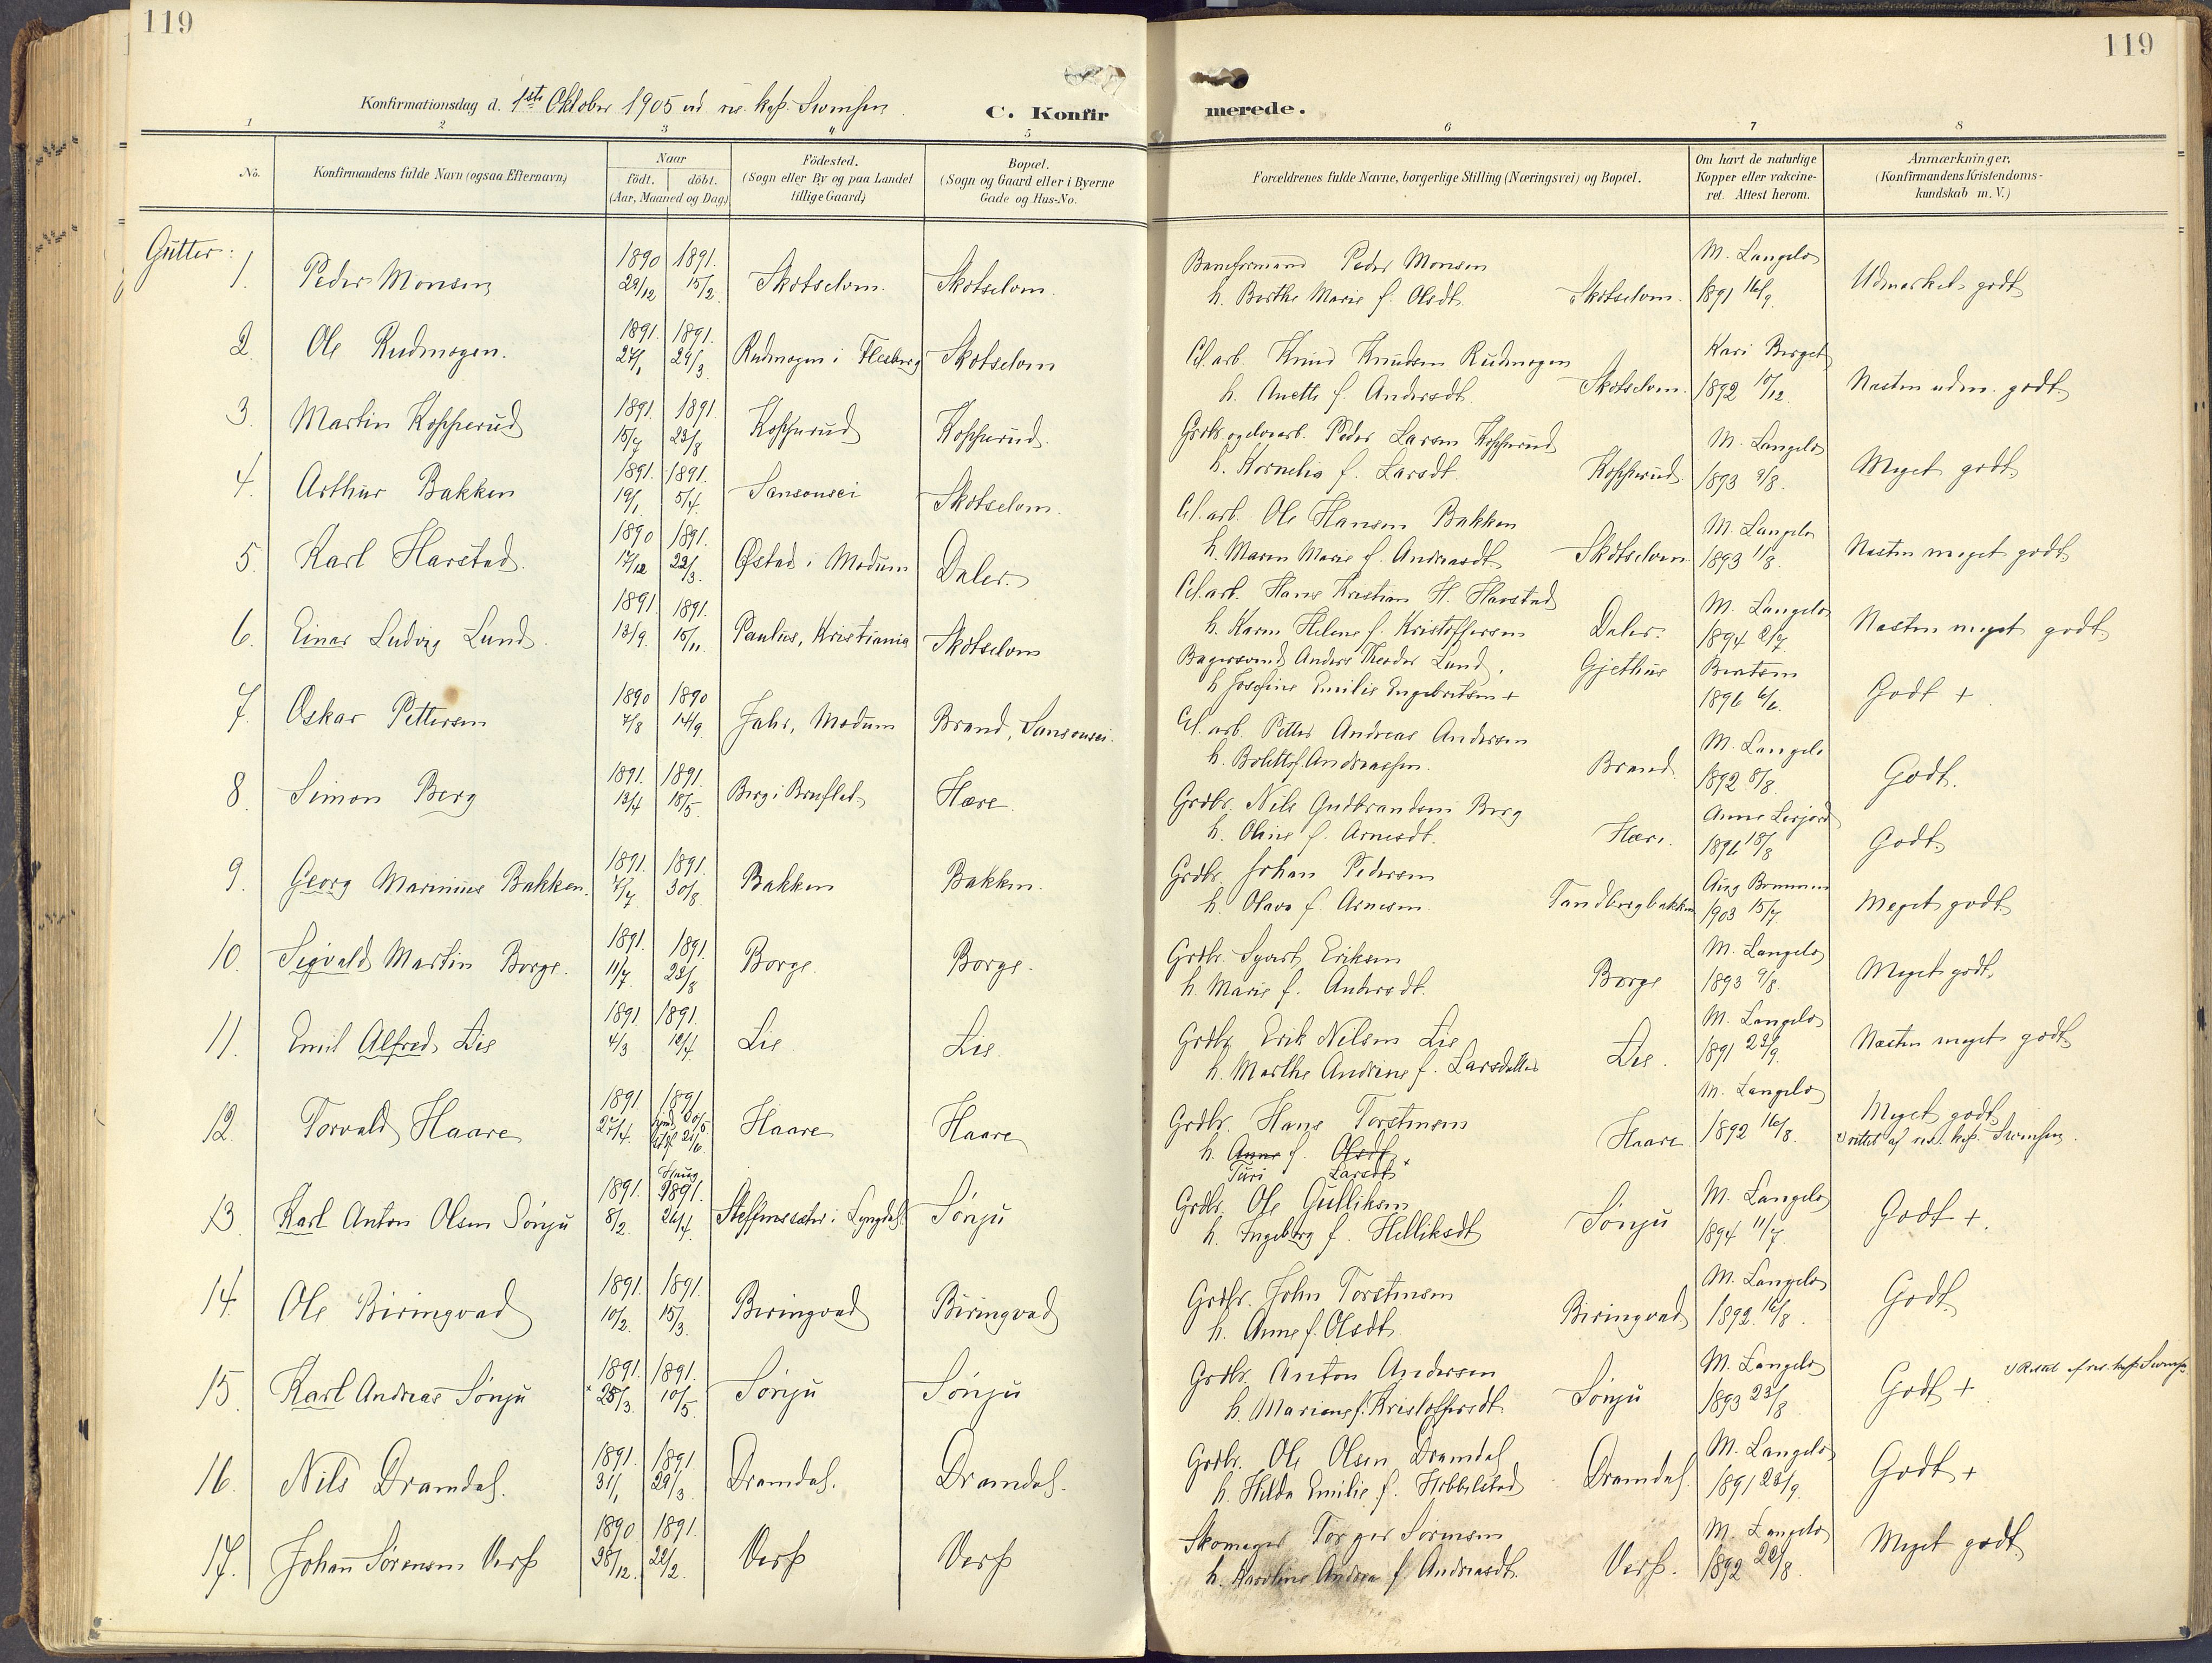 119
119
Konfirmationsdag d. 1ste Oktober 1905 ved res. kap. Svensen
C. Konfirmerede.
1 2 3 4 5 6 7 8
No.
Konfirmandens fulde Navn (ogsaa Efternavn)
Naar
födt. döbt.
(Aar, Maaned og Dag)
Födested.
(Sogn eller By og paa Landet
tillige Gaard)
Bopæl.
(Sogn og Gaard eller i Byerne
Gade og Hus-No.
Forældrenes fulde Navne, borgerlige Stilling (Næringsvei) og Bopæl.
Om havt de naturlige
Kopper eller vakcine-
ret. Attest herom.
Anmærkninger.
(Konfirmandens Kristendoms-
kundskab m. V.)
Gutter:
1. Peder Monsen 1890 29/12 1891. 15/2. Skotselven. Skotselven. Baneformand Peder Monsen
h. Berthe Marie f. Olsdt. Skotselven. M. Langelo 1891 16/9. Udmærket godt
2. Ole Rudmogen. 1891. 27/1 1891. 29/3. Rudmogen i Flesberg Skotselven Cel. arb. Knud Knudsen Rudmogen
h. Anette f. Andersdt. Skotselven. Kari Berget 1892 10/12. Næsten udm. godt
3. Martin Kopperud 1891. 15/7 1891. 23/8 Kopperud Kopperud. Grdbr. og elvearb. Peder Larsen Kopperud
h. Kornelia f. Larsdt. Kopperud M. Langelo 1893 9/8. Meget godt
4. Arthur Bakken 1891. 19/1. 1891. 5/4. Sansousci Skotselven. Cel. arb. Ole Hansen Bakken
h. Maren Marie f. Andreasdt. Skotselven M. Langelo 1893 11/8. Næsten meget godt
5. Karl Harstad. 1890 17/12 1891. 22/3. Østad i Modum Daler. Cel. arb. Hans Kristian H. Harstad
h. Karen Helene f. Kristoffersen Daler. M. Langelo 1894 2/7. Næsten meget godt
6. Einar Ludvig Lund. 1891. 13/9. 1891. 15/11. Paulus, Kristiania Skotselven Bagersvend Anders Theodor Lund,
h. Josefine Emilie Engebretsen + Gjethus Berntsen 1896 6/6. Godt +
7. Oskar Pettersen 1890 7/8 1890 14/9. Jahr, Modum Brand, Sansousei. Cel. arb. Petter Andreas Andersen
h. Bolette f. Andreassen. Brand. M. Langelo 1892 8/8. Godt.
8. Simon Berg 1891. 13/4 1891. 18/5. Berg i Bruflat Hære. Grdbr. Nils Gudbrandsen Berg
h. Oline f. Arnesdt. Hære. Anne 1896 18/8 Godt
9. Georg Marinius Bakken. 1891. 7/7 1891. 30/8. Bakken Bakken. Grdbr. Johan Pedersen
h. Olava f. Arnesen. Tandbergbakken Aug 1903 15/7 Meget godt
10. Sigvald Martin Borge. 1891. 11/7. 1891. 23/8 Borge. Borge. Grdbr. Syvert Eriksen
h. Marie f. Andersdt. Borge M. Langelo 1893 9/8. Meget godt.
11. Emil Alfred Lie 1891. 4/3 1891. 12/4. Lie Lie. Grdbr. Erik Nilsen Lie
h. Marthe Andrine f. Larsdatter Lie. M. Langelo 1891 23/9. Næsten meget godt
12. Torvald Haare 1891. 27/4. 1891. 20/5 21/6. Haare Haare Grdbr. Hans Torstensen
h. Anne f. Olsdt.
Turi Larsdt. Haare M. Langelo 1892 16/8. Meget godt
rettet af res. kap. Svensen.
13. Karl Anton Olsen Sönju 1891. 8/2. Haug 1891. 26/4. Steffenssæter i Lyngdal Sönju Grdbr. Ole Gulliksen
h. Ingeborg f. Helliksdt Sönju M. Langelo 1894 11/7. Godt +.
14. Ole Biringvad 1891. 10/2. 1891. 15/3. Biringvad Biringvad Grdbr. John Torstensen
h. Anne f. Olsdt. Biringvad M. Langelo 1892. 16/8. Godt
15. Karl Andreas Sönju 1891. 28/3. 1891. 10/5. Sönju Sönju Grdbr. Anton Andersen
h. Mariane f. Kristoffersdt. Sönju M. Langelo 1893 23/8 Godt + Rettet af res. kap. Svensen
16. Nils Dramdal. 1891. 31/1 1891 29/3. Dramdal. Dramdal. Grdbr. Ole Olsen Dramdal
h. Hilda Emilie f. Hobbelstad Dramdal. M. Langelo 1891 23/9. Godt +
17. Johan Sörensen Verp 1890 28/12. 1891. 22/2. Verp Verp Skomager Torger Sörensen
h. Karoline Andrea f. Andreasdt. Verp. M. Langelo 1892 22/8. Meget godt